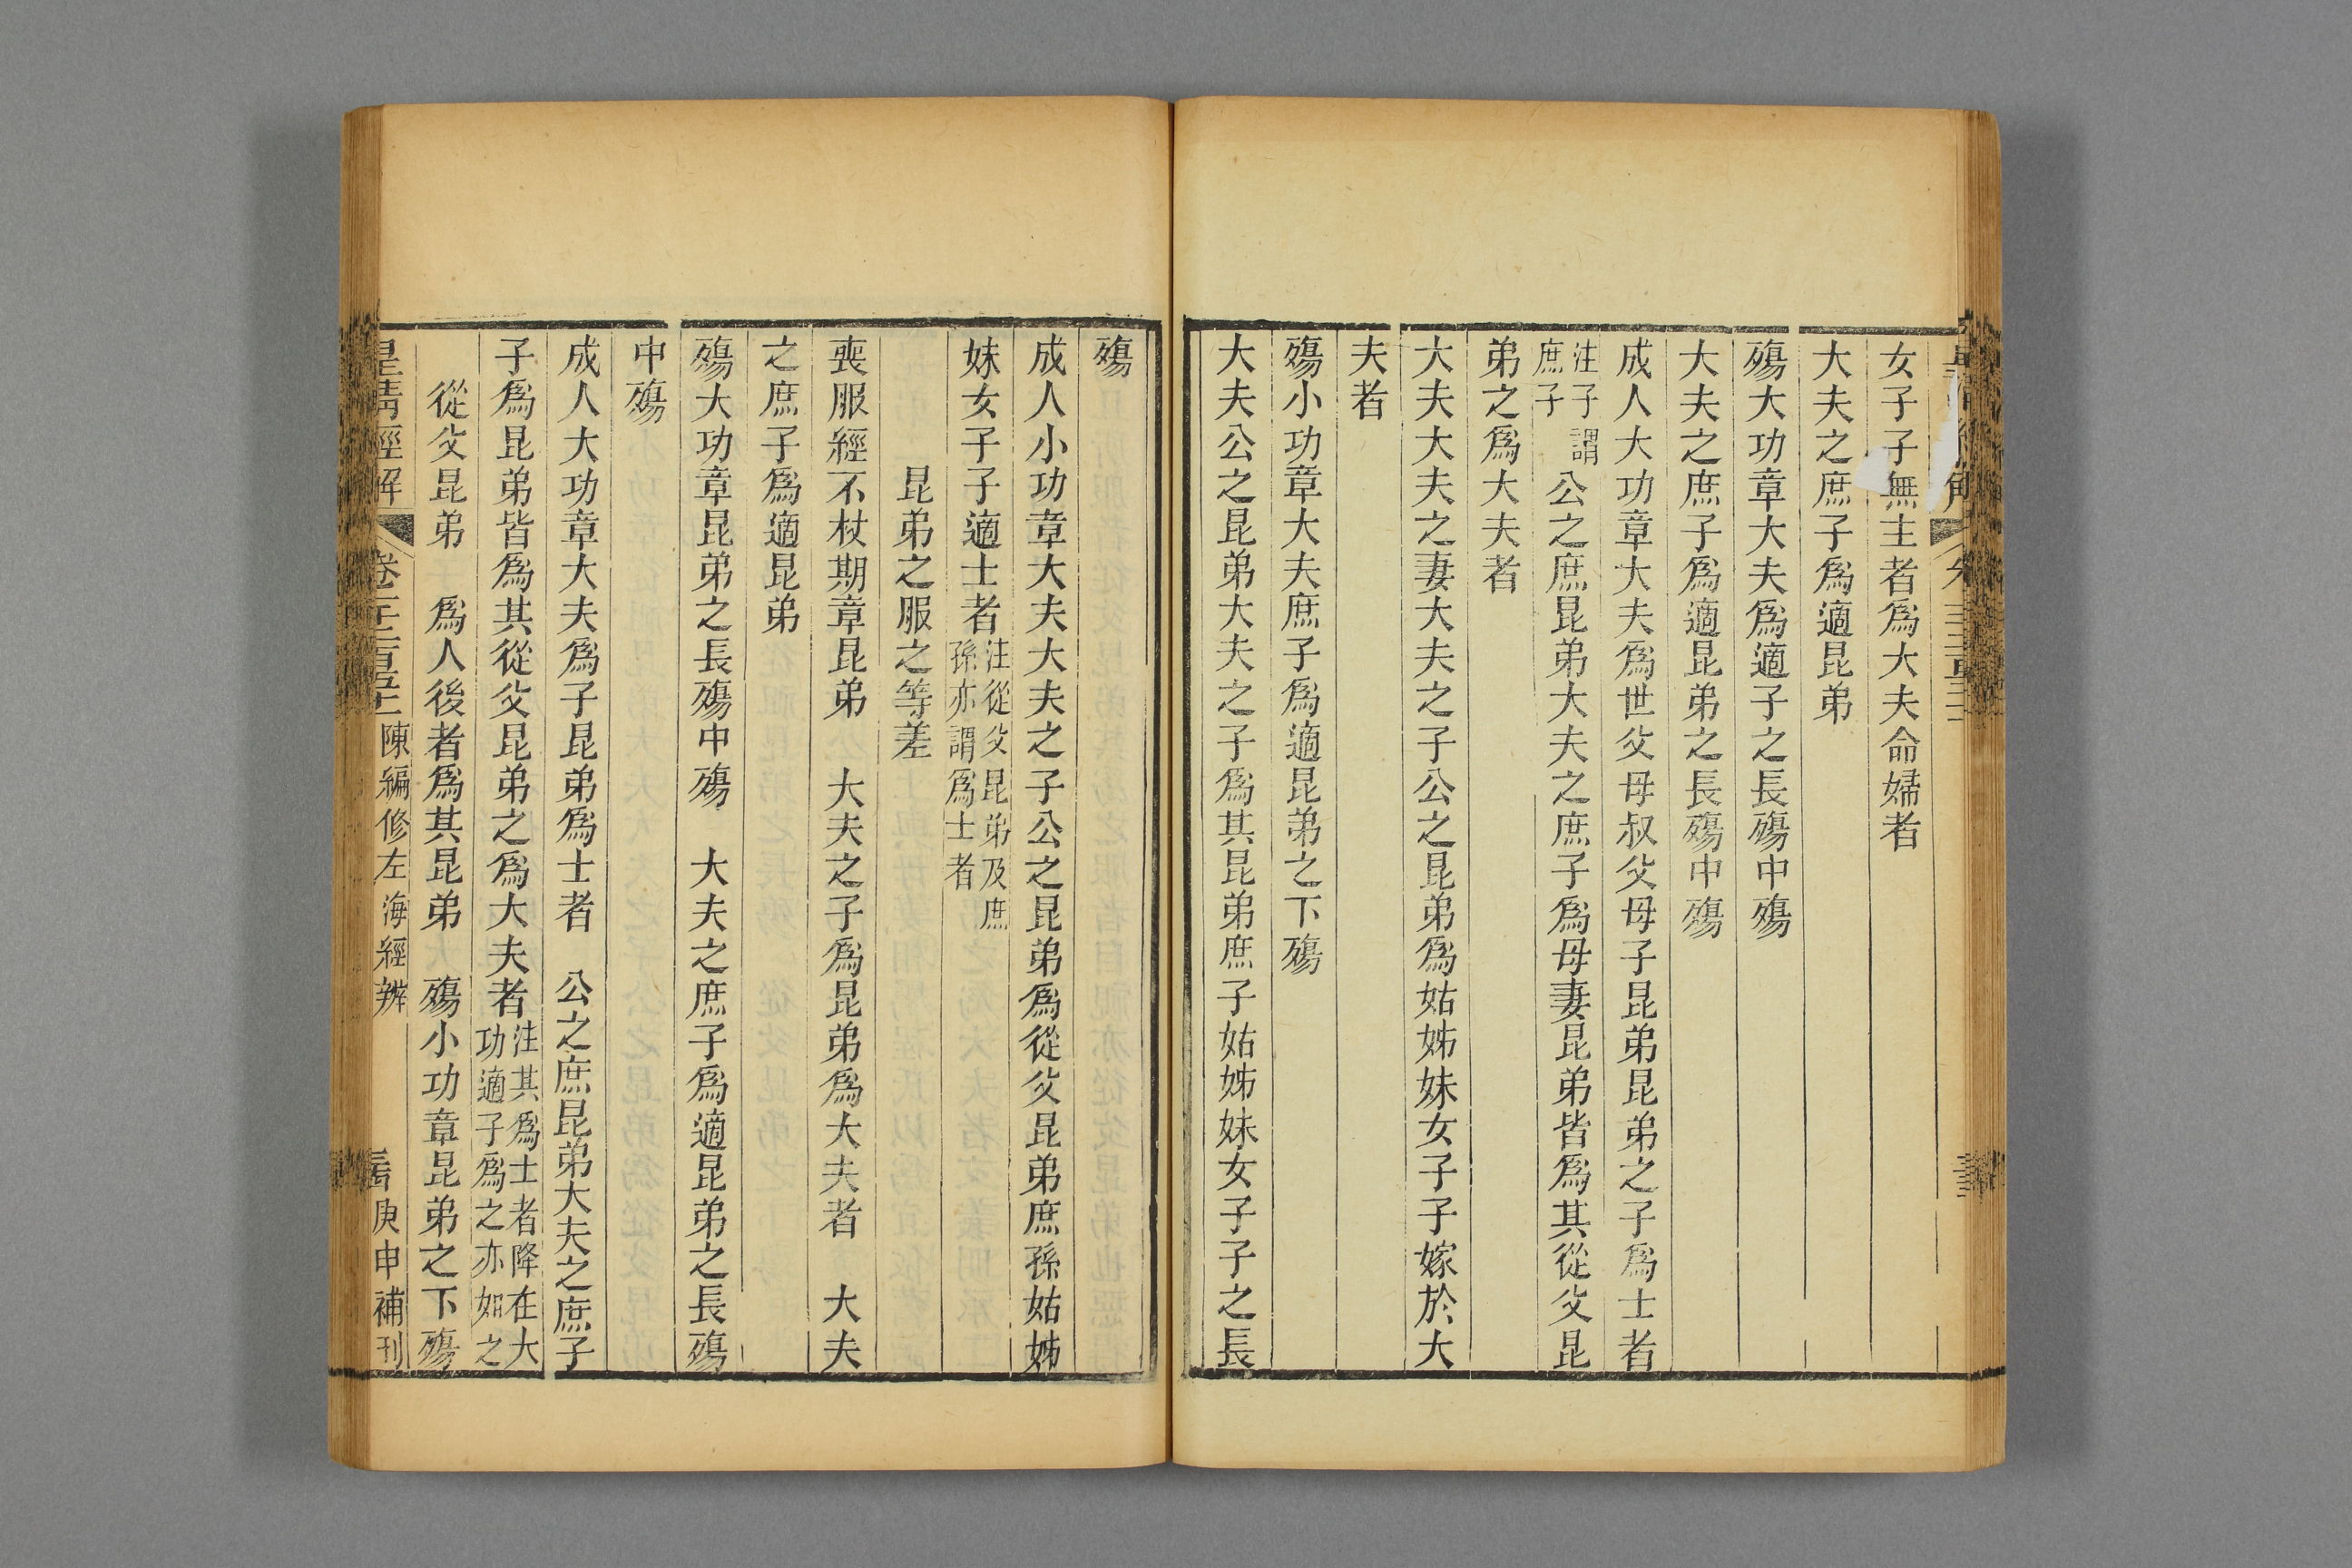 女子子無主者爲大夫命婦者
大夫之庶子爲適昆弟
殤大功章大夫爲適子之長殤中殤
大夫之庶子爲適昆弟之長殤中殤
成人大功章大夫爲世父母叔父母子昆弟昆弟之子爲士者
注子謂庶子公之庶昆弟大夫之庶子爲母妻昆弟皆爲其從父昆
弟之爲大夫者
大夫大夫之妻大夫之子公之昆弟爲姑姊妹女子子嫁於大
夫者
殤小功章大夫庶子爲適昆弟之下殤
大夫公之昆弟大夫之子爲其昆弟庶子姑姊妹女子子之長
殤
成人小功章大夫大夫之子公之昆弟爲從父昆弟庶孫姑姊
妹女子子適士者注從父昆弟及庶孫亦謂爲士者
昆弟之服之等差
喪服經不杖期章昆弟 大夫之子爲昆弟爲大夫者 大夫
之庶子爲適昆弟
殤大功章昆弟之長殤中殤 大夫之庶子爲適昆弟之長殤
中殤
成人大功章大夫爲子昆弟爲士者 公之庶昆弟大夫之庶子
子爲昆弟皆爲其從父昆弟之爲大夫者注其爲士者降在大功適子爲之亦如之
從父昆弟 爲人後者爲其昆弟 殤小功章昆弟之下殤
皇淸經解 卷 陳編修左海經辨 庚申補刊